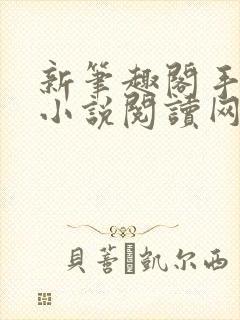 新筆趣閣手
小說閱讀网
貝蒈 凱尔西